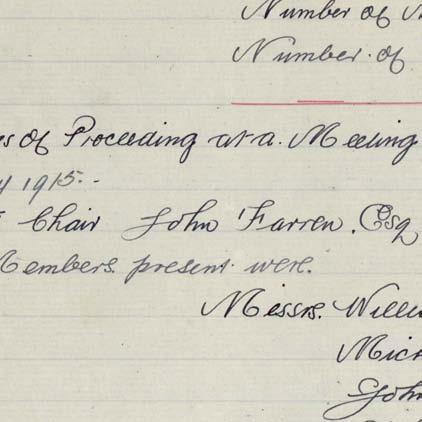 Number of
Number of
es of Proceeding at a. Meeting
y 1915.-
Chair John Farren. Esq
Members present were.
Messrs. Willi
Mich
John